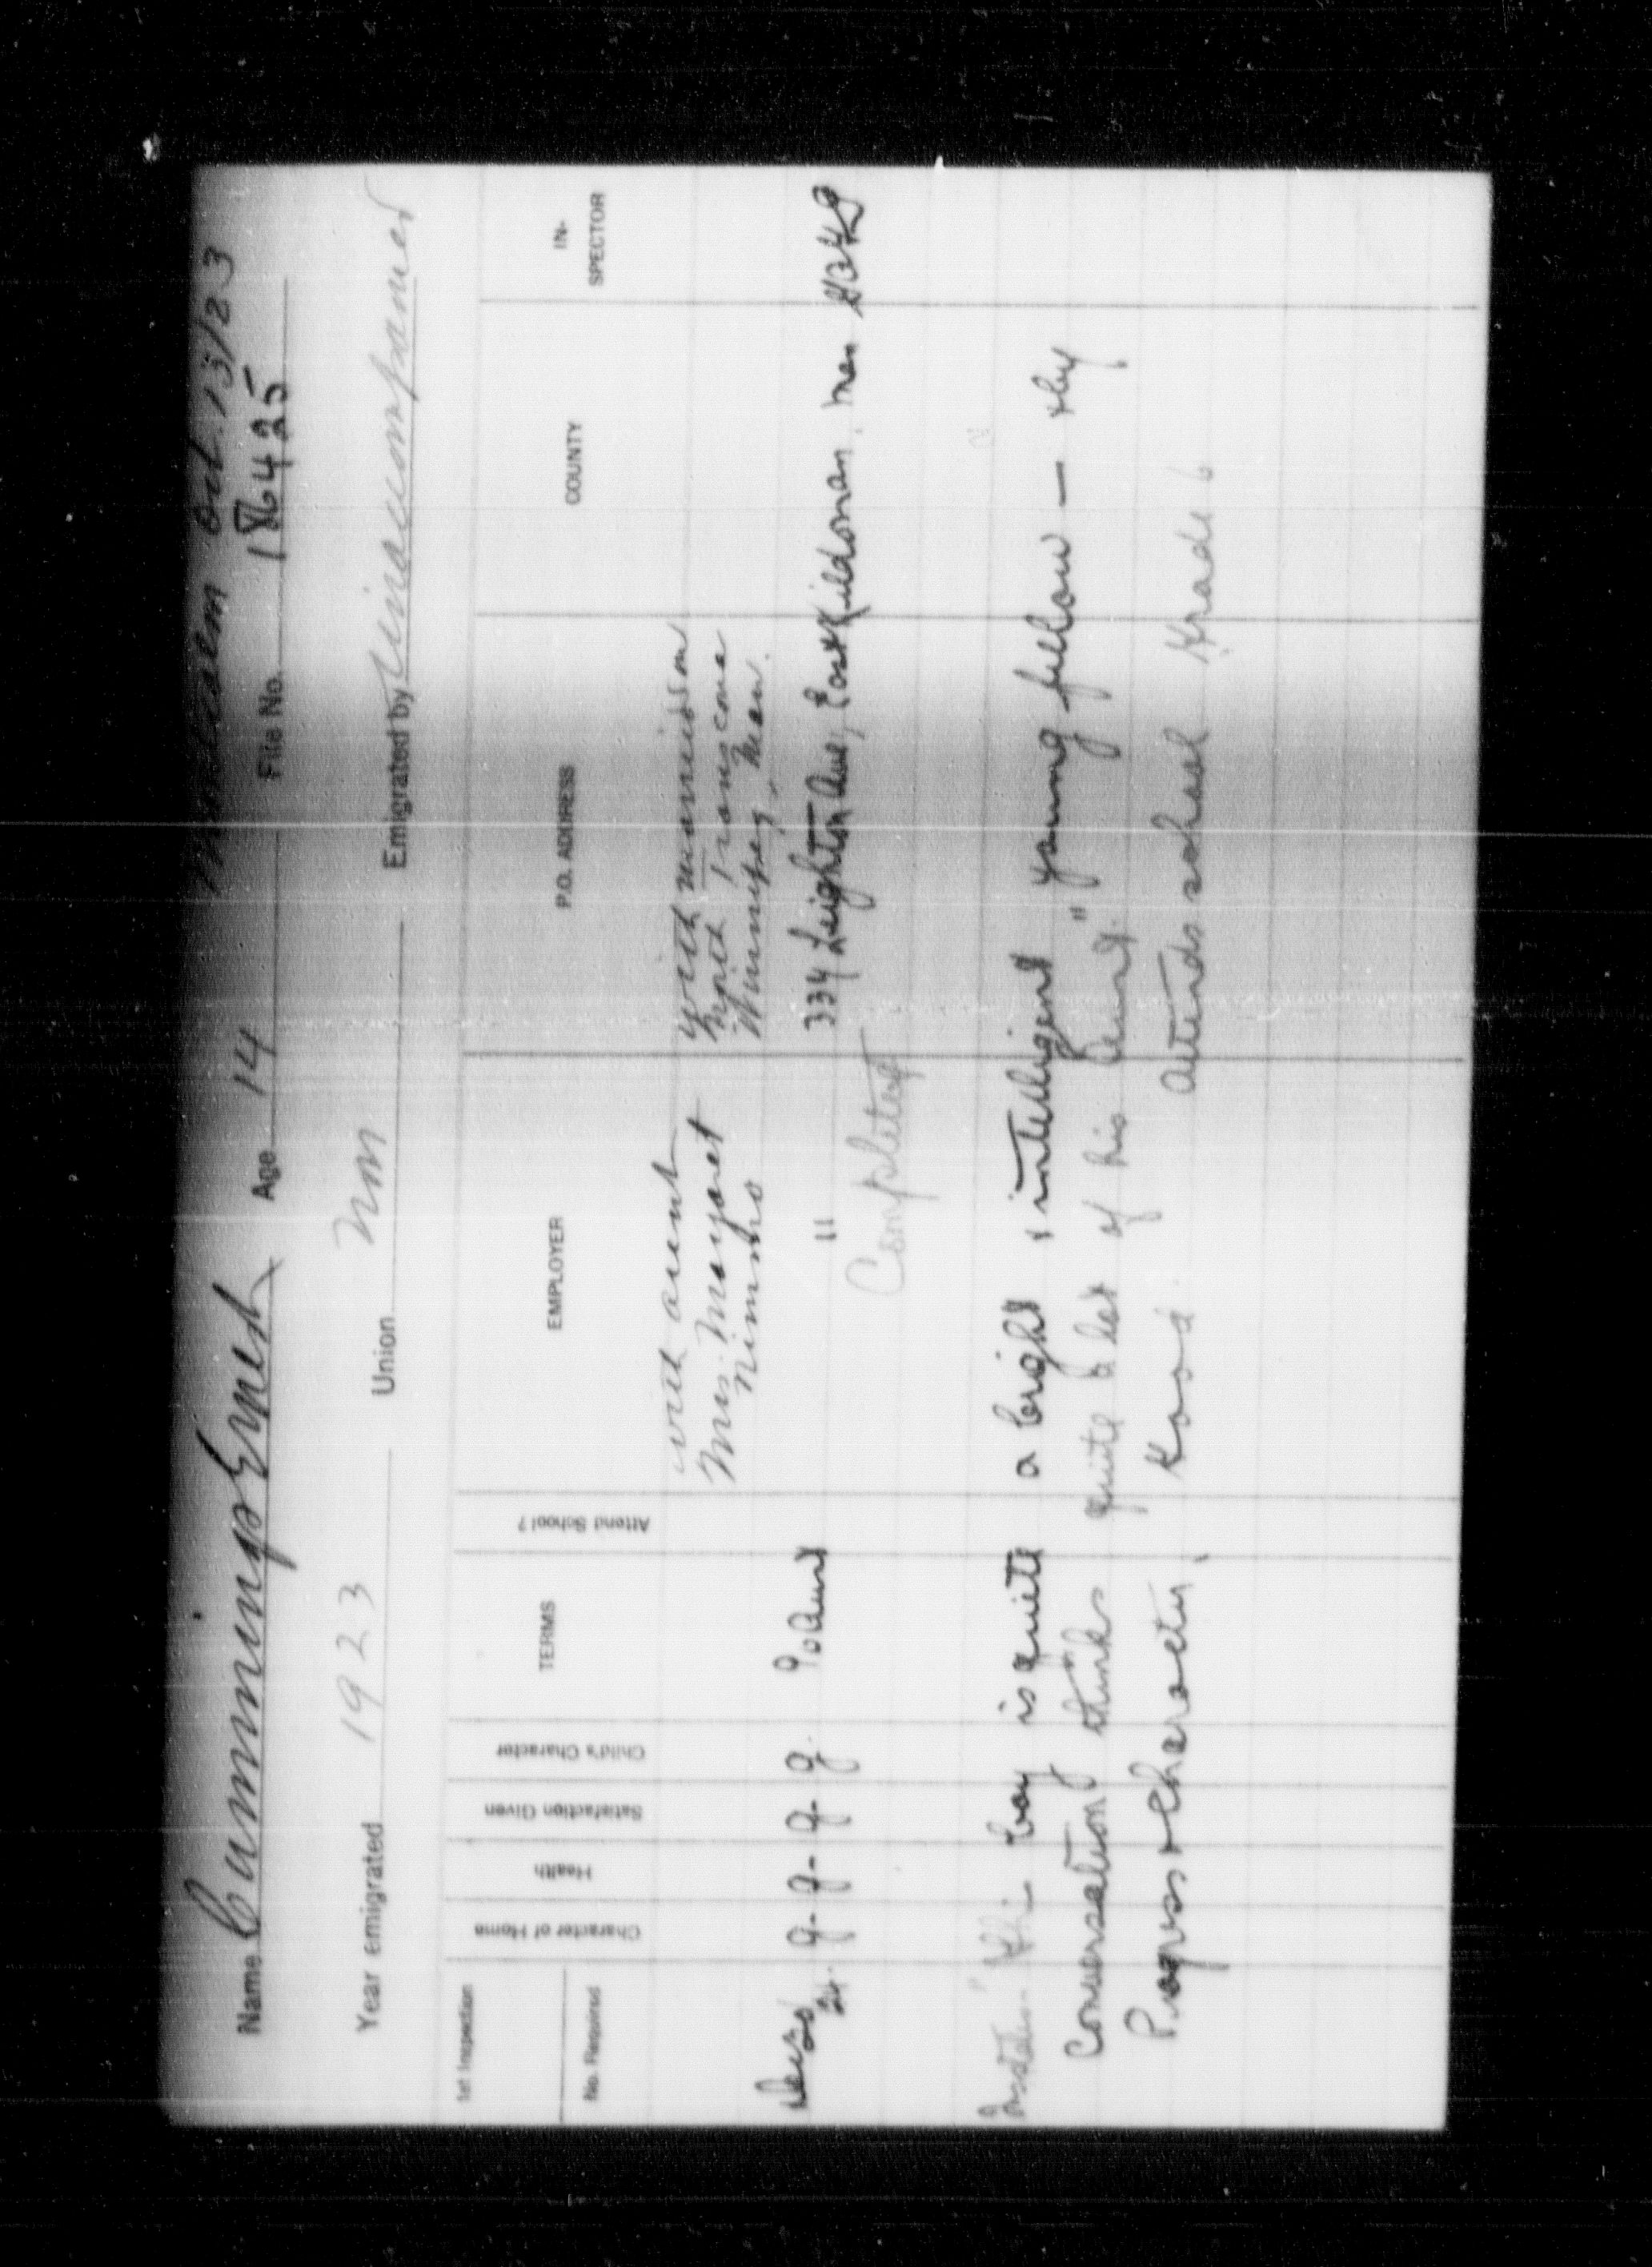 Oct. 13/23
Name Cummings Ernest Age 14 File No. 186425
Year emigrated 1923 Union Non Emigrated by Unaccompanied
1st Inspection
No. Required
Character of Home
Health
Satisfaction Given
Child's Character
TERMS
Attend School?
EMPLOYER
P.O. ADDRESS
COUNTY
IN-
SPECTOR
with aunt
Mrs. Margaret
Nimmo
Winnipeg, Man.
Dec 20
24. g. g. g. g. Aunt " 334 Leighton Ave, East Kildonan, Man
Completed
boy is quite a bright & intelligent young fellow — they
Conversation thinks quite a lot of his Aunt."
Progress & Character, Good Attends school Grade 6